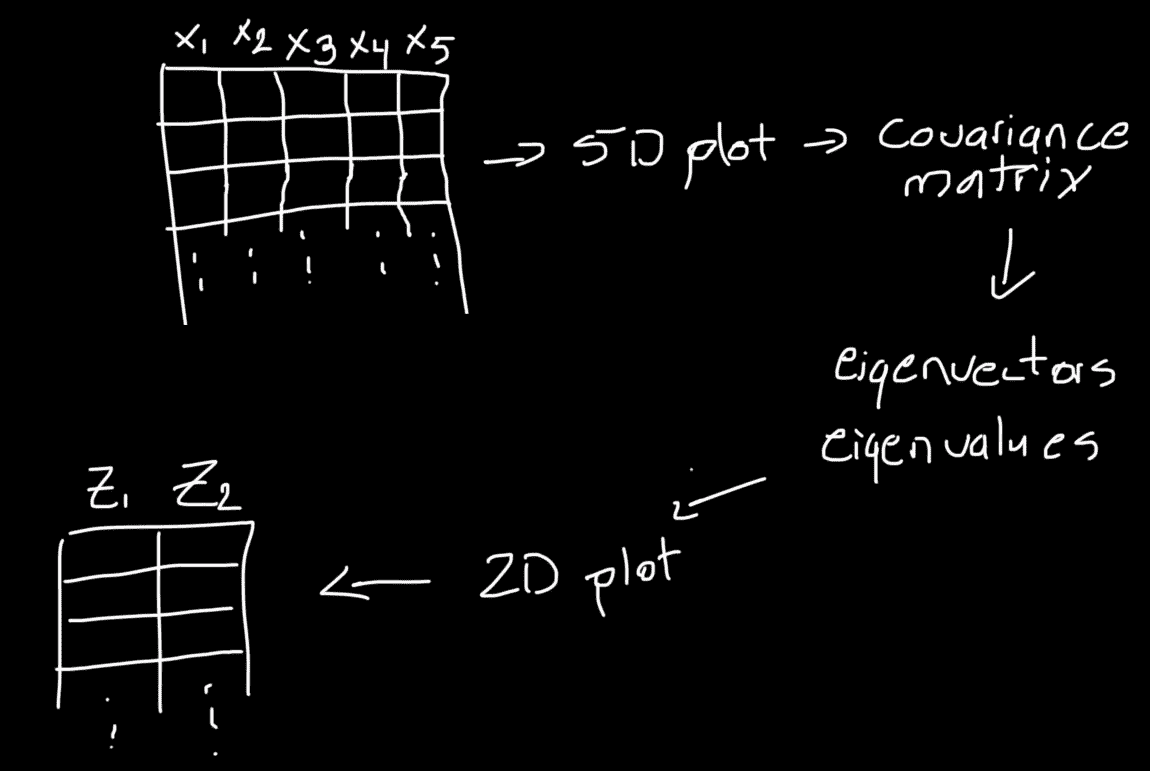 x1 x2 x3 x4 x5
→ 5D plot → covariance
matrix
↓
eigenvectors
eigenvalues
↙
z1 z2
← 2D plot